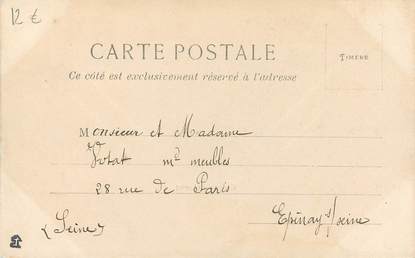 12 €
CARTE POSTALE
Ce côté est exclusivement réservé à l'adresse
TIMBRE
Monsieur et Madame
Votat md meubles
28 rue de Paris
Epinay s/seine
(Seine)